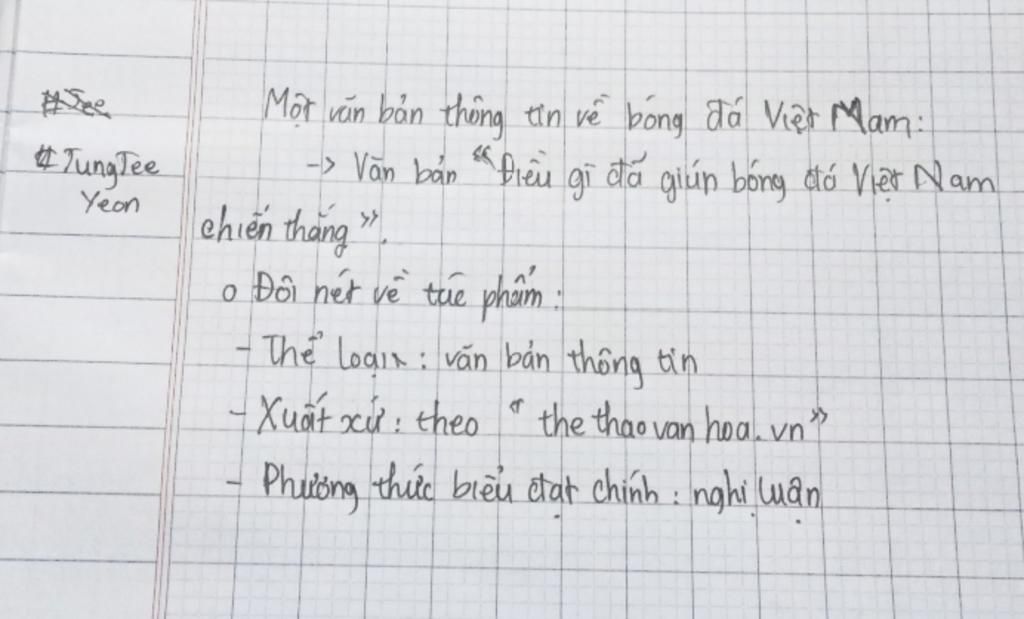 #TungTee
Yeon
Một văn bản thông tin về bóng đá Việt Nam:
-> Văn bản "Điều gì đã giúp bóng đá Việt Nam
chiến thắng".
o Đôi nét về tác phẩm:
- Thể loại: văn bản thông tin
- Xuất xứ: theo "thethaovanhoa.vn"
- Phương thức biểu đạt chính: nghị luận